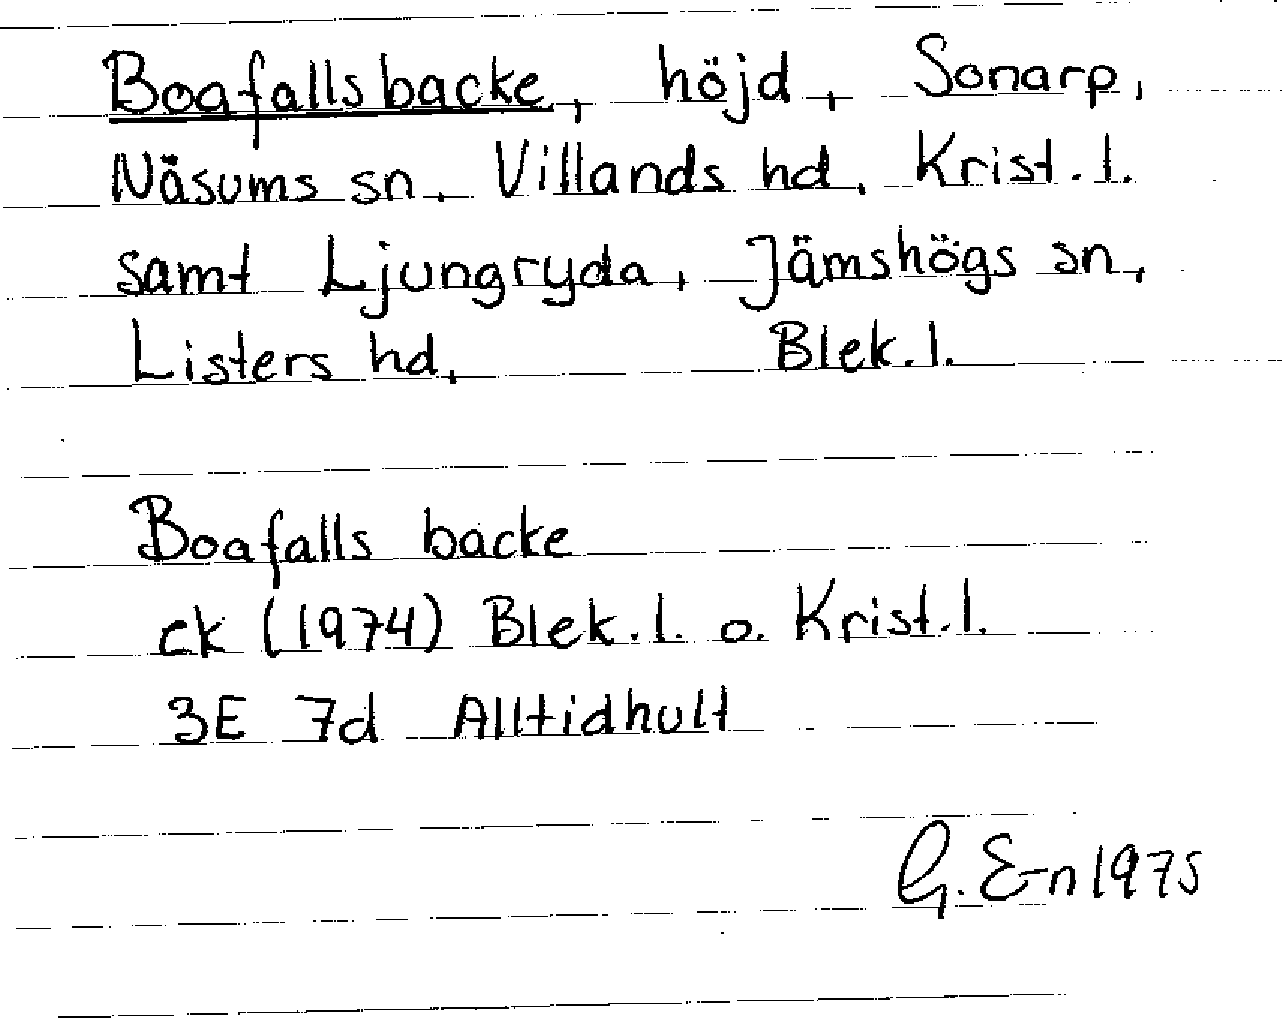 Boafallsbacke, höjd, Sonarp,
Näsums sn, Villands hd, Krist.l.
samt Ljungryda, Jämshögs sn,
Listers hd, Blek.l.
Boafalls backe
ck (1974) Blek.l. o. Krist.l.
3E 7d Alltidhult
G. E-n 1975